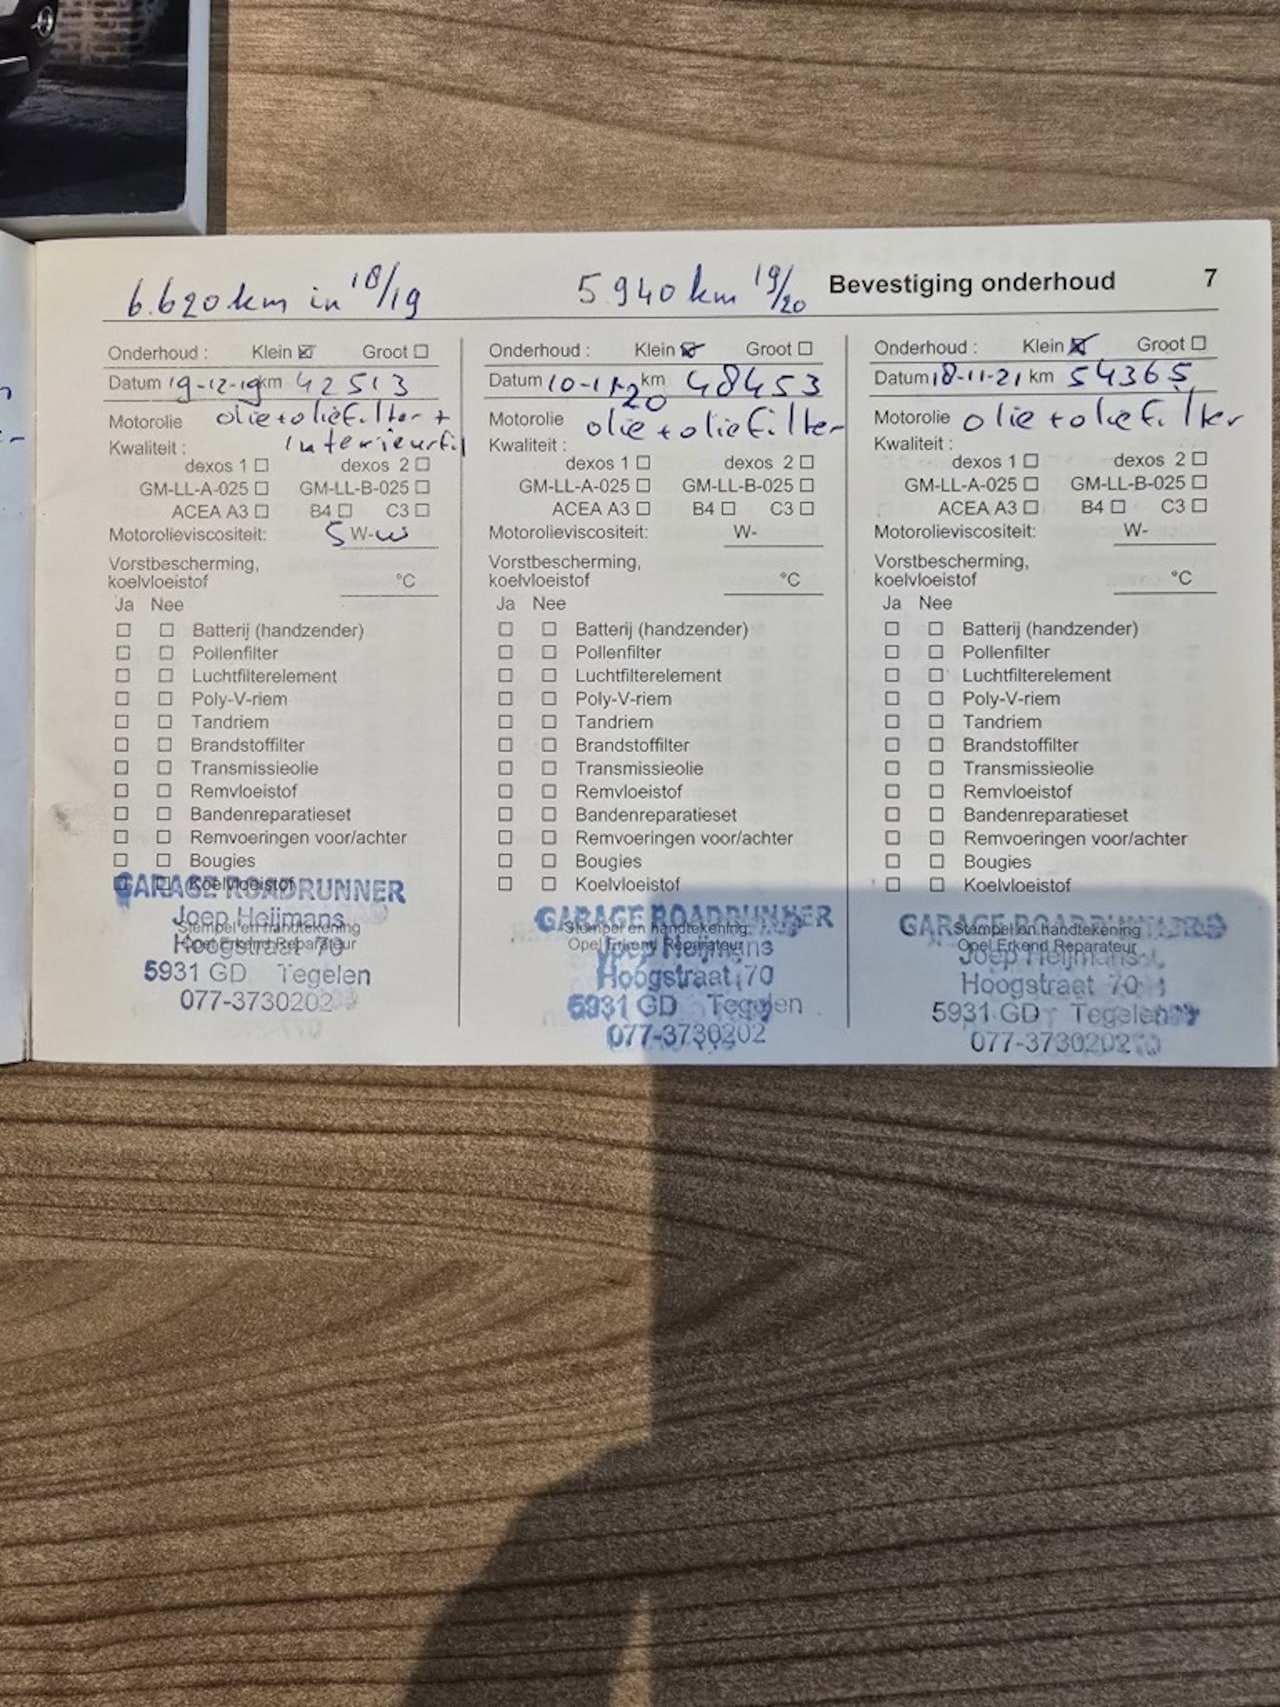 6.620 km in 18/19
5.940 km 19/20
Bevestiging onderhoud 7
Onderhoud : Klein ☒ Groot ☐
Datum 19-12-19 km 42513
Motorolie olie + oliefilter +
Kwaliteit : Interieurfil
dexos 1 ☐ dexos 2 ☐
GM-LL-A-025 ☐ GM-LL-B-025 ☐
ACEA A3 ☐ B4 ☐ C3 ☐
Motorolieviscositeit: 5 W-
Vorstbescherming,
koelvloeistof °C
Ja Nee
☐ ☐ Batterij (handzender)
☐ ☐ Pollenfilter
☐ ☐ Luchtfilterelement
☐ ☐ Poly-V-riem
☐ ☐ Tandriem
☐ ☐ Brandstoffilter
☐ ☐ Transmissieolie
☐ ☐ Remvloeistof
☐ ☐ Bandenreparatieset
☐ ☐ Remvoeringen voor/achter
☐ ☐ Bougies
☐ ☐ Koelvloeistof
GARAGE ROADRUNNER
Joep Heijmans
Stempel en handtekening
Hoogstraat 70
Opel Erkend Reparateur
5931 GD Tegelen
077-3730202
Onderhoud : Klein ☒ Groot ☐
Datum 10-11-20 km 48453
Motorolie olie + oliefilter
Kwaliteit :
dexos 1 ☐ dexos 2 ☐
GM-LL-A-025 ☐ GM-LL-B-025 ☐
ACEA A3 ☐ B4 ☐ C3 ☐
Motorolieviscositeit: W-
Vorstbescherming,
koelvloeistof °C
Ja Nee
☐ ☐ Batterij (handzender)
☐ ☐ Pollenfilter
☐ ☐ Luchtfilterelement
☐ ☐ Poly-V-riem
☐ ☐ Tandriem
☐ ☐ Brandstoffilter
☐ ☐ Transmissieolie
☐ ☐ Remvloeistof
☐ ☐ Bandenreparatieset
☐ ☐ Remvoeringen voor/achter
☐ ☐ Bougies
☐ ☐ Koelvloeistof
GARAGE ROADRUNNER
Stempel en handtekening
Opel Erkend Reparateur
Joep Heijmans
Hoogstraat 70
5931 GD Tegelen
077-3730202
Onderhoud : Klein ☒ Groot ☐
Datum 18-11-21 km 54365
Motorolie olie + oliefilter
Kwaliteit :
dexos 1 ☐ dexos 2 ☐
GM-LL-A-025 ☐ GM-LL-B-025 ☐
ACEA A3 ☐ B4 ☐ C3 ☐
Motorolieviscositeit: W-
Vorstbescherming,
koelvloeistof °C
Ja Nee
☐ ☐ Batterij (handzender)
☐ ☐ Pollenfilter
☐ ☐ Luchtfilterelement
☐ ☐ Poly-V-riem
☐ ☐ Tandriem
☐ ☐ Brandstoffilter
☐ ☐ Transmissieolie
☐ ☐ Remvloeistof
☐ ☐ Bandenreparatieset
☐ ☐ Remvoeringen voor/achter
☐ ☐ Bougies
☐ ☐ Koelvloeistof
GARAGE ROADRUNNER
Stempel en handtekening
Opel Erkend Reparateur
Joep Heijmans
Hoogstraat 70
5931 GD Tegelen
077-3730202